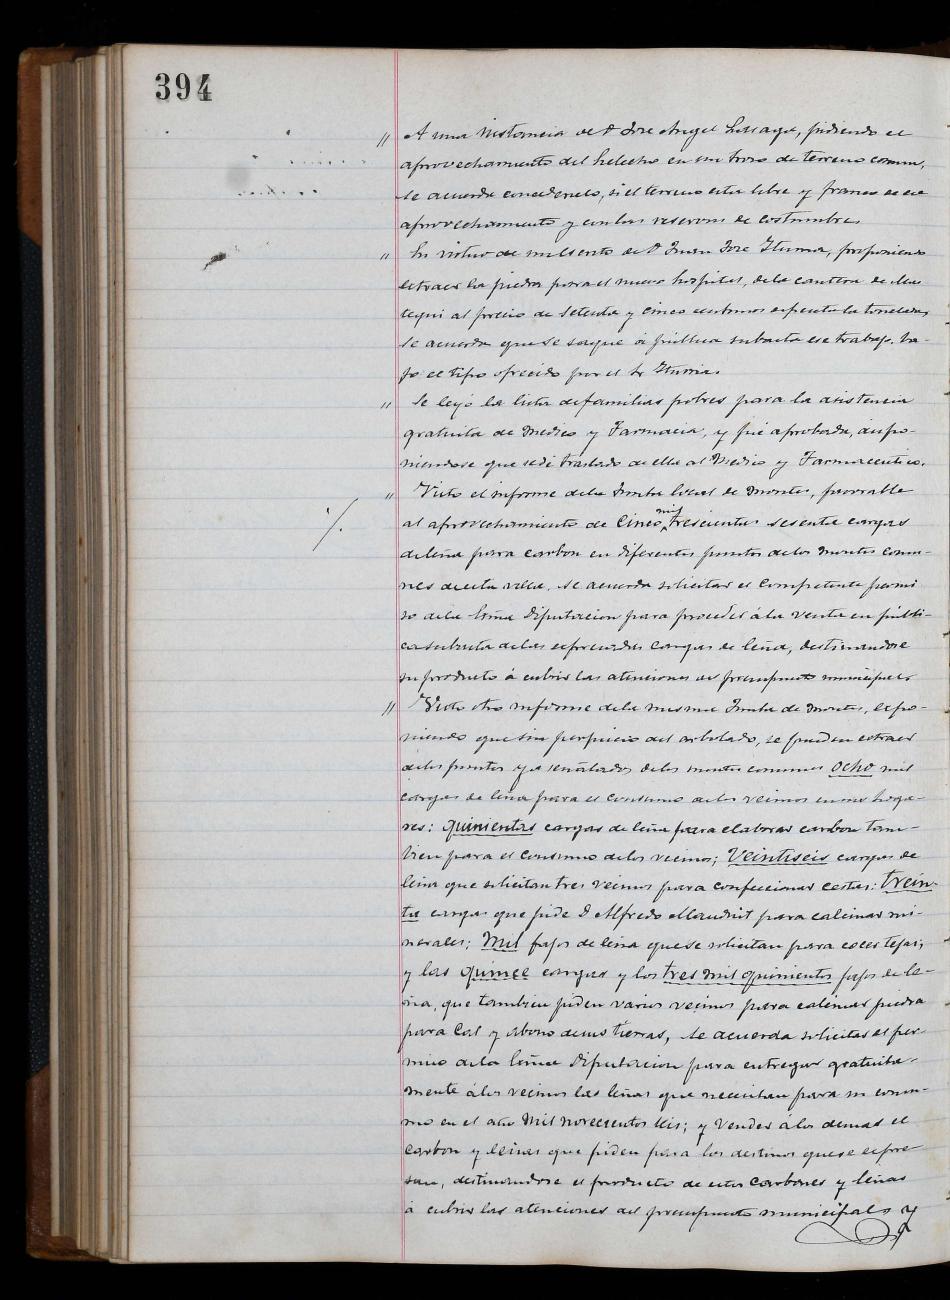 394
" A una instancia de D. Jose Angel Lizeaga, pidiendo el
aprovechamiento del helecho en un trozo de terreno comun,
se acuerda concedérselo, si el terreno esta libre y franco de ese
aprovechamiento y con las reservas de costumbre.
" En virtud de un escrito de D. Juan Jose Iturria, proponiendo
extraer la piedra para el nuevo hospital, de la cantera de
al precio de setenta y cinco centimos espuesta la tonelada,
se acuerda que se saque á pública subasta ese trabajo, ba-
jo el tipo ofrecido por el Sr Iturria.
" Se leyó la lista de familias pobres para la asistencia
gratuita de Medico y Farmacia, y fué aprobada, dispo-
niendose que se dé traslado de ella al Medico y Farmaceutico.
" Visto el informe de la Junta local de montes, favorable
al aprovechamiento de Cinco mil trescientas sesenta cargas
de leña para carbon en diferentes puntos de los montes comu-
nes de esta villa, se acuerda solicitar el competente permi
so de la Exma Diputacion para proceder á la venta en públi-
ca subasta de las espresadas cargas de leña, destinandose
su producto á cubrir las atenciones del presupuesto municipal.
" Visto otro informe de la misma Junta de montes, espo-
niendo que sin perjuicio del arbolado, se pueden extraer
de los puntos ya señalados de los montes comunes ocho mil
cargas de leña para el consumo de los vecinos en sus hoga-
res: quinientas cargas de leña para elaborar carbon tam-
bien para el consumo de los vecinos; Veintiseis cargas de
leña que solicitan tres vecinos para confeccionar cestas: trein-
ta cargas que pide D Alfredo Mandrit para calcinar mi-
nerales; Mil fajos de leña que se solicitan para cocer tejas;
y las quince cargas y los tres mil quinientos fajos de le-
ña, que tambien piden varios vecinos para calcinar piedra
para Cal y abono de sus tierras, se acuerda solicitar el per-
miso de la Exma Diputacion para entregar gratuita-
mente á los vecinos las leñas que necesitan para su consu-
mo en el año Mil novecientos seis; y vender á los demas el
Carbon y leñas que piden para los destinos que se espre
san, destinandose el producto de estos Carbones y leñas
á cubrir las atenciones del presupuesto municipal. y